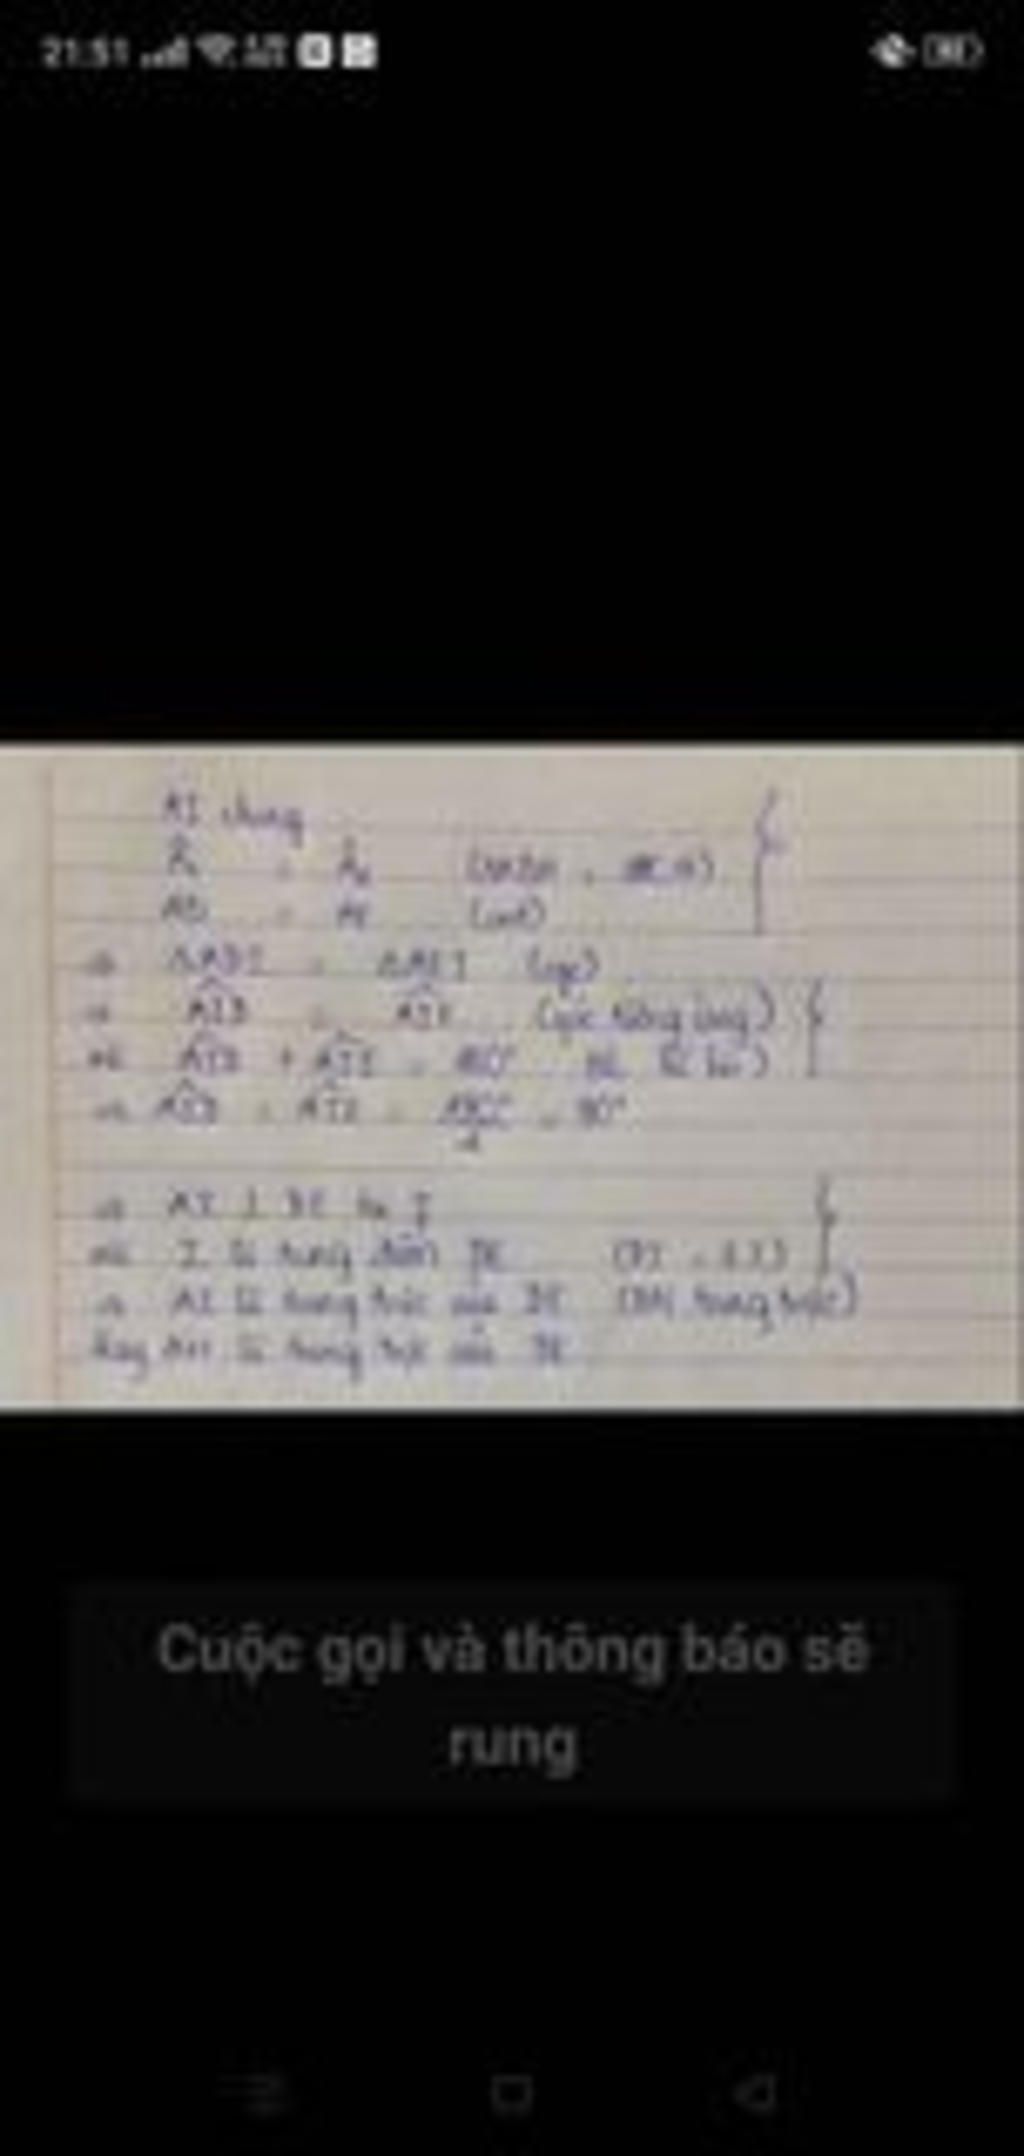 21:51
AI chung
Â₁ = Â₂
AD = AE (cmt)
⇒ ΔADI = ΔAEI (cgc)
⇒ AID = AIE (góc tương ứng)
mà AID + AIE = 180° kề bù)
⇒ AID = AIE = 180° = 90°
2
⇒ AI ⊥ DE tại I
mà I là trung điểm DE (DI = EI)
⇒ AI là trung trực của DE trung trực)
Hay AH là trung trực của DE
Cuộc gọi và thông báo sẽ
rung